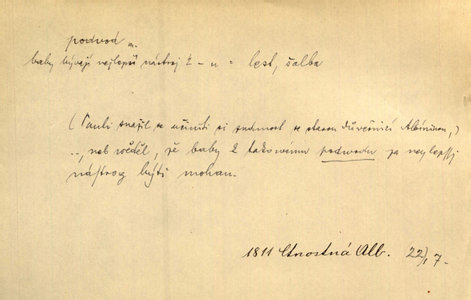 podvod m.
baby bývají nejlepší nástroj k – u = lest, šalba
(Pauli snažil se učiniti si známost se starou důvěrnicí Albininou,)
.., neb věděl, že baby k takowému podwodu za neylepssj
nástrog býti mohau.
1811 Ctnostná Alb. 22), 7.